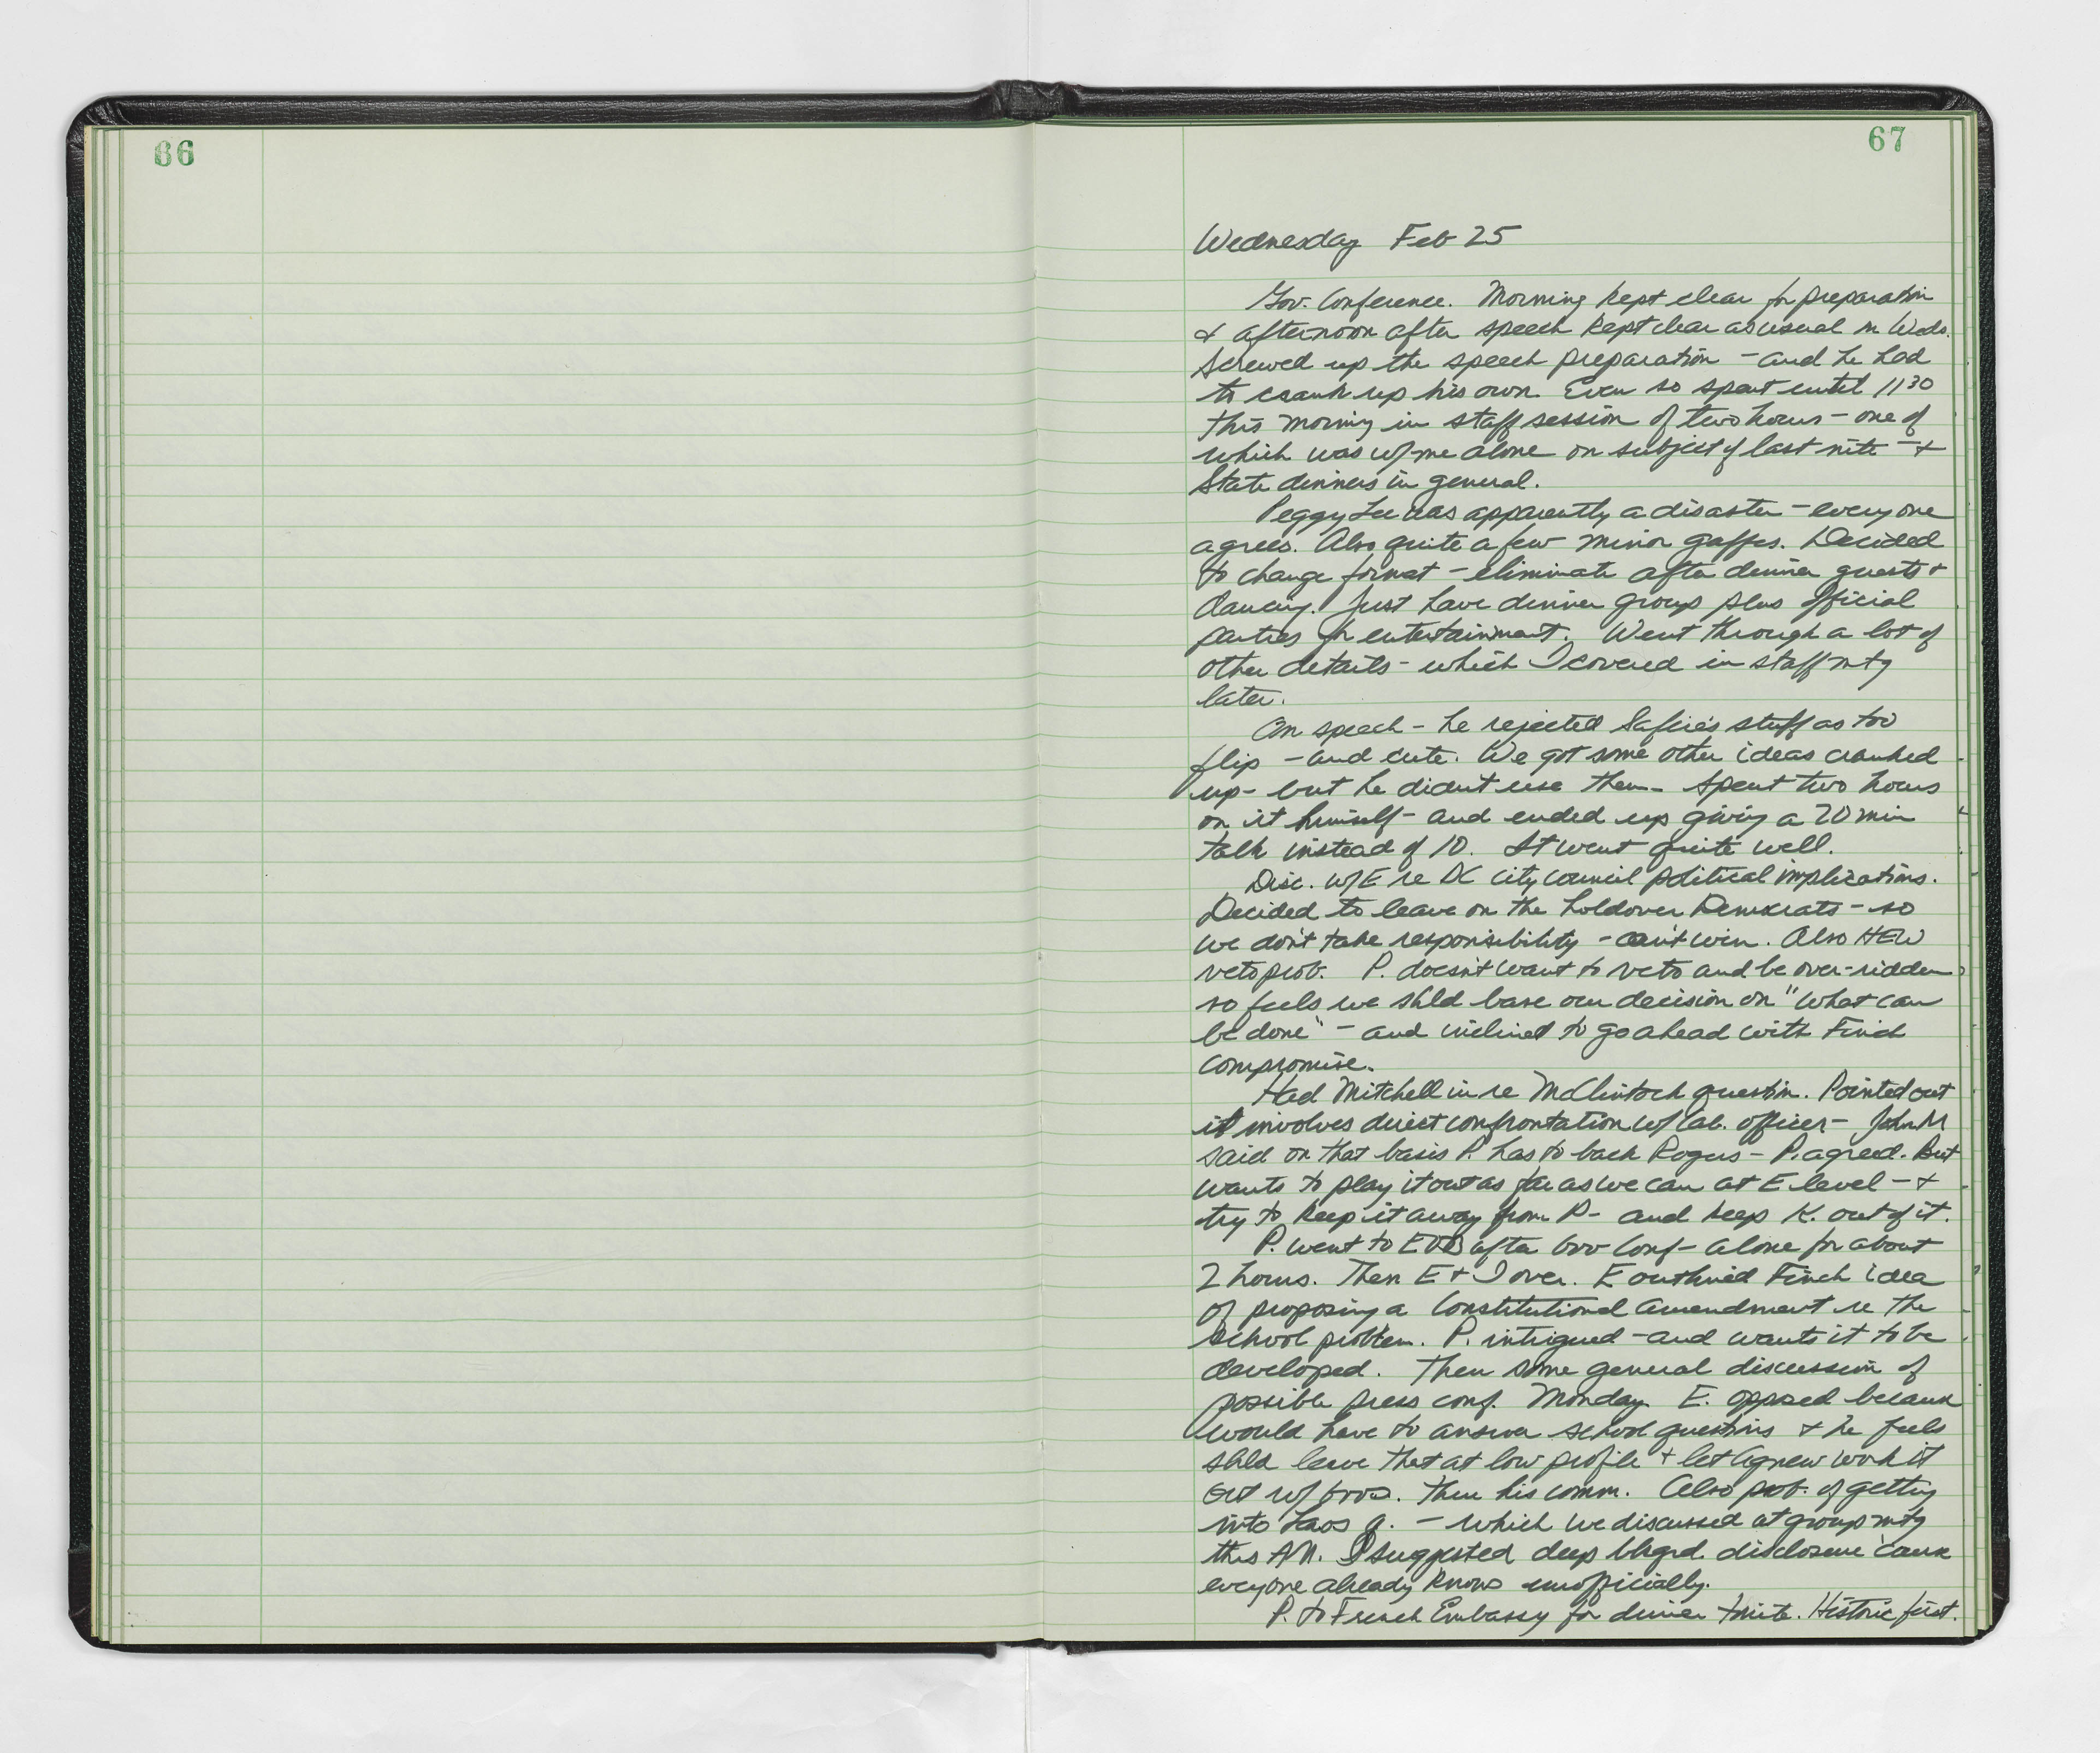 66
67
Wednesday Feb 25
Gov. Conference. Morning kept clear for preparation
& afternoon after speech kept clear as usual on Weds.
Screwed up the speech preparation - and he had
to crank up his own. Even so spent until 11 30
this morning in staff session of two hours - one of
which was w/me alone on subject of last nite - &
State dinners in general.
Peggy Lee was apparently a disaster - everyone
agrees. Also quite a few minor gaffes. Decided
to change format - eliminate after dinner guests &
dancing. Just have dinner group plus official
parties for entertainment. Went through a lot of
other details - which I covered in staff mtg
later.
On speech - he rejected Safire's stuff as too
flip - and cute. We got some other ideas cranked
up - but he didn't use them - spent two hours
on it himself - and ended up giving a 20 min
talk instead of 10. It went quite well.
Disc. w/E re DC City Council political implications.
Decided to leave on the holdover Democrats - so
we don't take responsibility - can't win. Also HEW
veto prob. P. doesn't want to veto and be over-ridden
so feels we shld base our decision on "what can
be done" - and inclined to go ahead with Finch
compromise.
Had Mitchell in re McClintock question. Pointed out
it involves direct confrontation w/Cab. officer - John M
said on that basis P. has to back Rogers - P. agreed. But
wants to play it out as far as we can at E level - &
try to keep it away from P - and keep K. out of it.
P. went to EOB after Gov Conf - alone for about
2 hours. Then E & I over. E outlined Finch idea
of proposing a Constitutional Amendment re the
school problem. P. intrigued - and wants it to be
developed. Then some general discussion of
possible press conf. Monday. E. opposed because
would have to answer school questions & he feels
shld leave that at low profile & let Agnew work it
out w/Govs. thru his comm. Also prob. of getting
into Laos q. - which we discussed at group mtg
this AM. I suggested deep bkgrd. disclosure 'cause
everyone already knows unofficially.
P. to French Embassy for dinner tonite. Historic first.